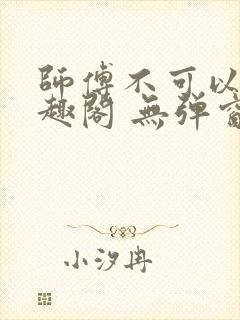 師傅不可以
趣閣 無彈窗
小汐冉